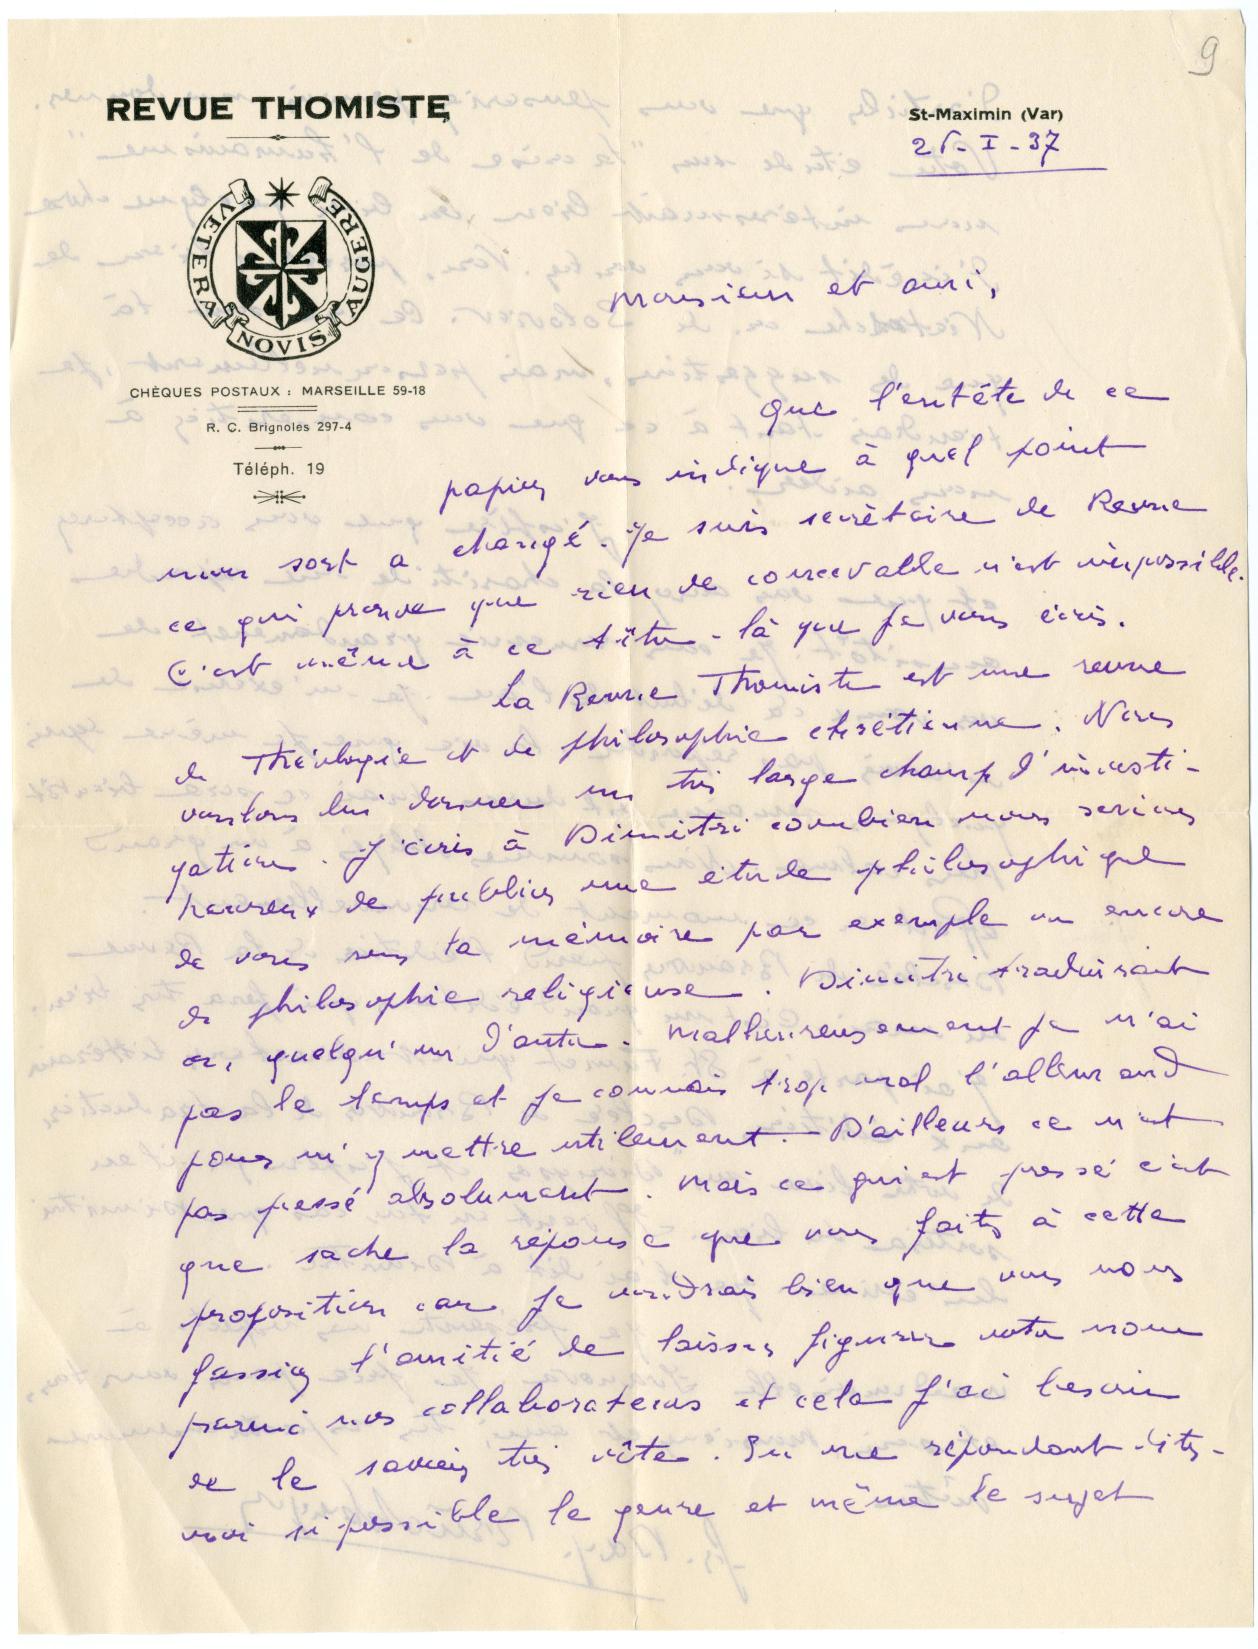 9
REVUE THOMISTE
St-Maximin (Var)
I - 37
VETERA NOVIS AUGERE
CHÈQUES POSTAUX : MARSEILLE 59-18
R. C. Brignoles 297-4
Téléph. 19
Monsieur et ami,
Que l'entête de ce
papier vous indique à quel point
mon sort a changé. Je suis secrétaire de Revue
ce qui prouve que rien de concevable n'est impossible.
C'est même à ce titre-là que je vous écris.
La Revue Thomiste est une revue
de Théologie et de philosophie chrétienne. Nous
voulons lui donner un très large champ d'investi-
gation. J'écris à Dimitri combien nous serions
heureux de publier une étude philosophique
de vous sur la mémoire par exemple ou encore
de philosophie religieuse. Dimitri traduirait
ou, quelqu'un d'autre. Malheureusement je n'ai
pas le temps et je connais trop mal l'allemand
pour m'y mettre utilement. D'ailleurs ce n'est
pas pressé absolument. Mais ce qui est pressé c'est
que sache la réponse que vous faites à cette
proposition car je voudrais bien que vous nous
fassiez l'amitié de laisser figurer votre nom
parmi nos collaborateurs et cela j'ai besoin
de le savoir très vite. En me répondant dites-
moi si possible le genre et même le sujet